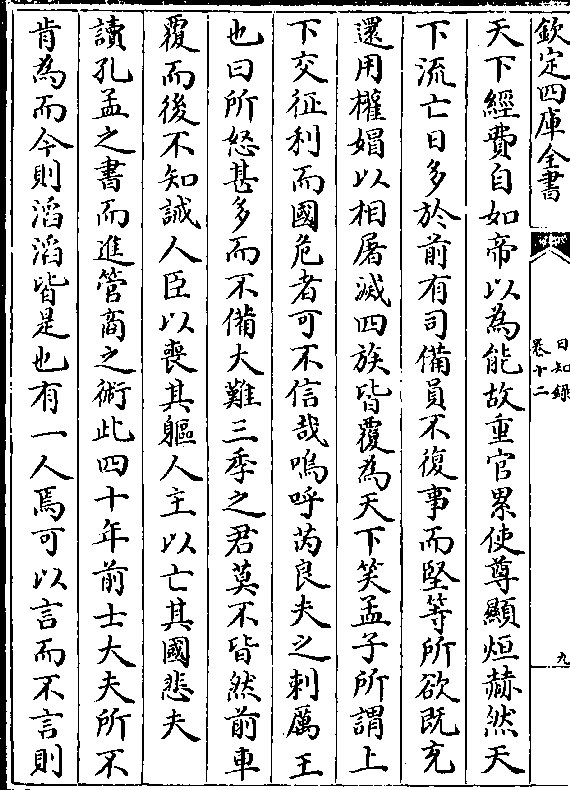 欽定四庫全書
日知錄
卷十二
九
天下經費自如帝以為能故重官累使尊顯烜赫然天
下流亡日多於前有司備員不復事而堅等所欲既充
還用權媢以相屠滅四族皆覆為天下笑孟子所謂上
下交征利而國危者可不信哉嗚呼芮良夫之刺厲王
也曰所怒甚多而不備大難三季之君莫不皆然前車
覆而後不知誡人臣以喪其軀人主以亡其國悲夫
讀孔孟之書而進管商之術此四十年前士大夫所不
肯為而今則滔滔皆是也有一人焉可以言而不言則